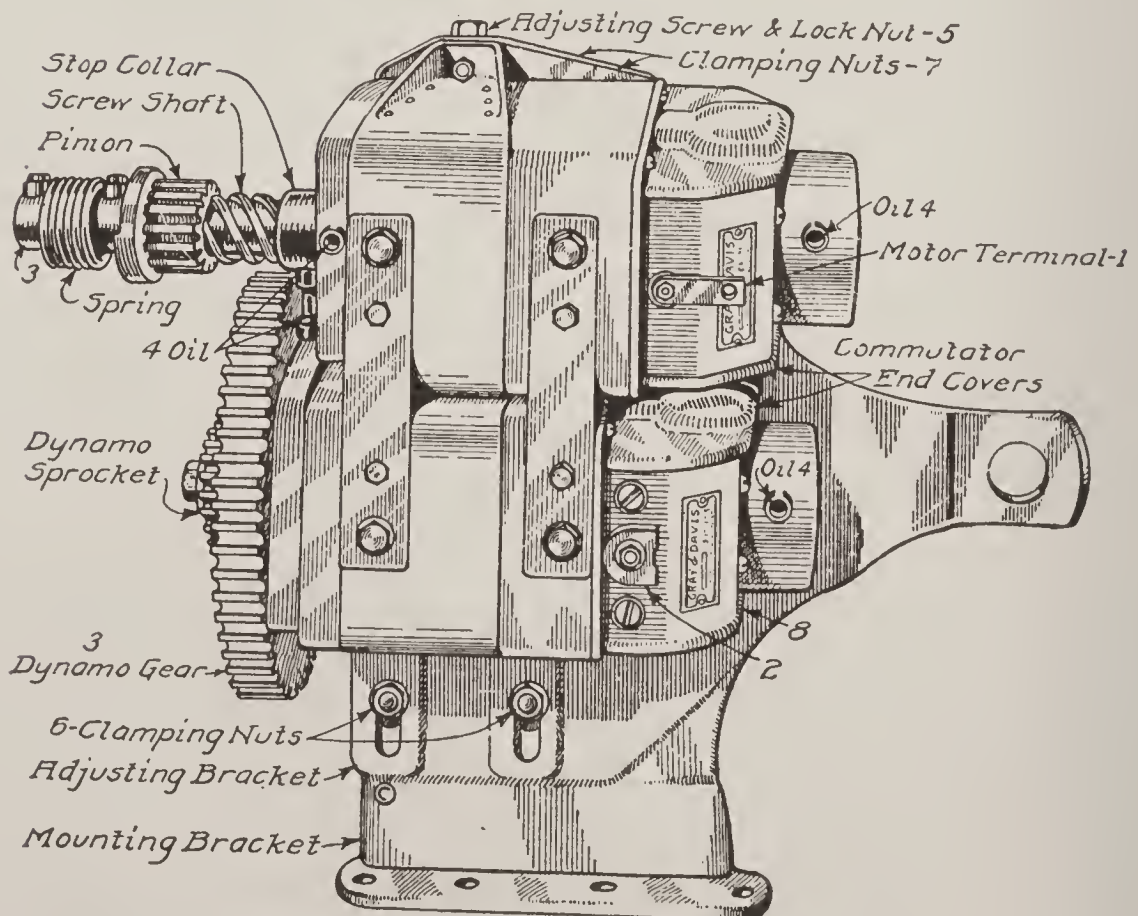 Adjusting Screw & Lock Nut-5
Clamping Nuts-7
Stop Collar
Screw Shaft
Pinion
3
Spring
4 Oil
Oil 4
Motor Terminal-1
GRAY & DAVIS
Commutator
End Covers
Dynamo
Sprocket
Oil 4
GRAY & DAVIS
8
2
3
Dynamo Gear
6-Clamping Nuts
Adjusting Bracket
Mounting Bracket